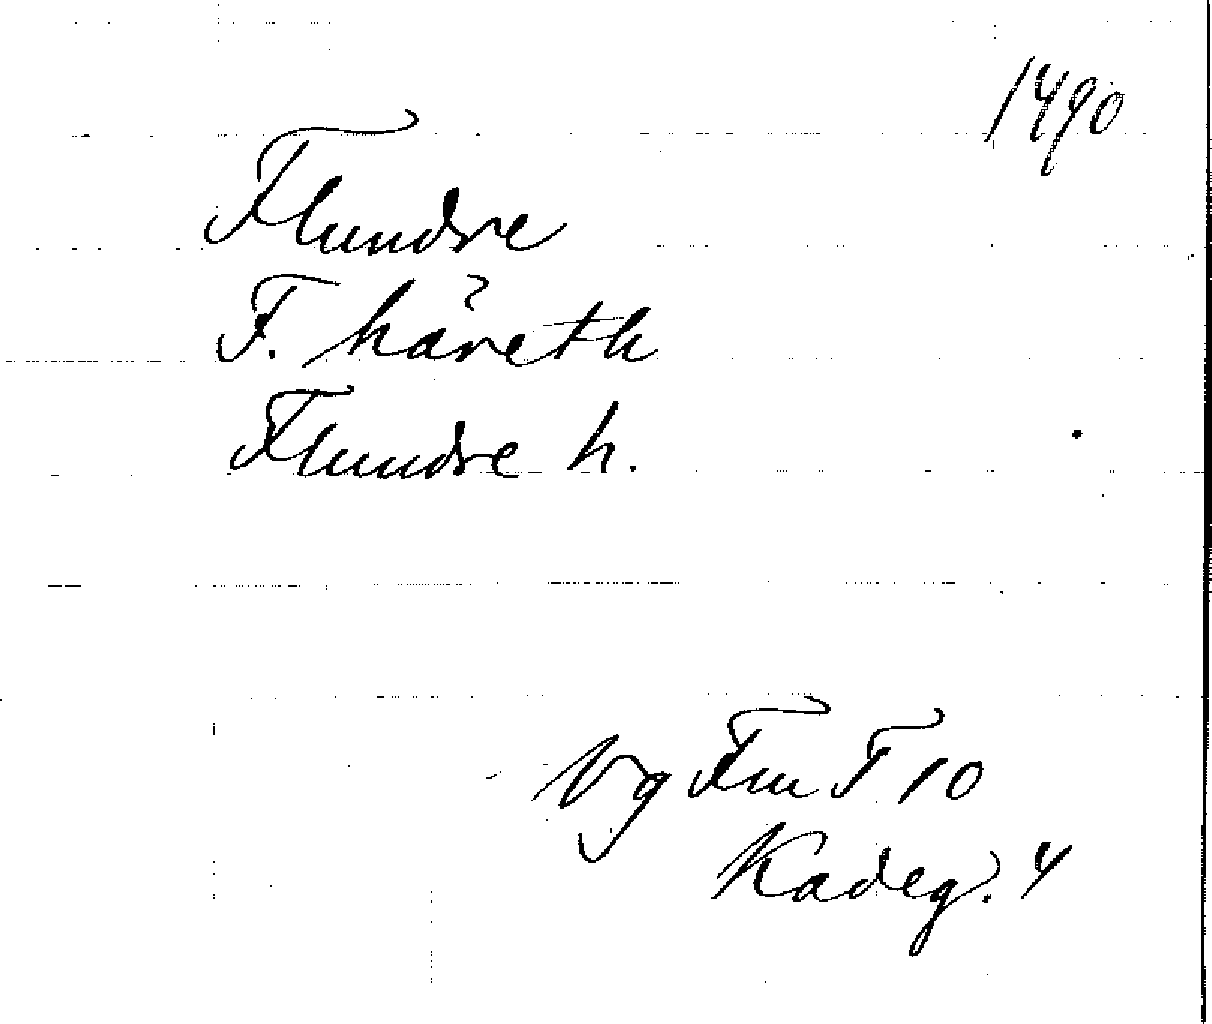 1490
Flundre
F. häreth
Flundre h.
Vg Fm F 10
Kadeg. 4